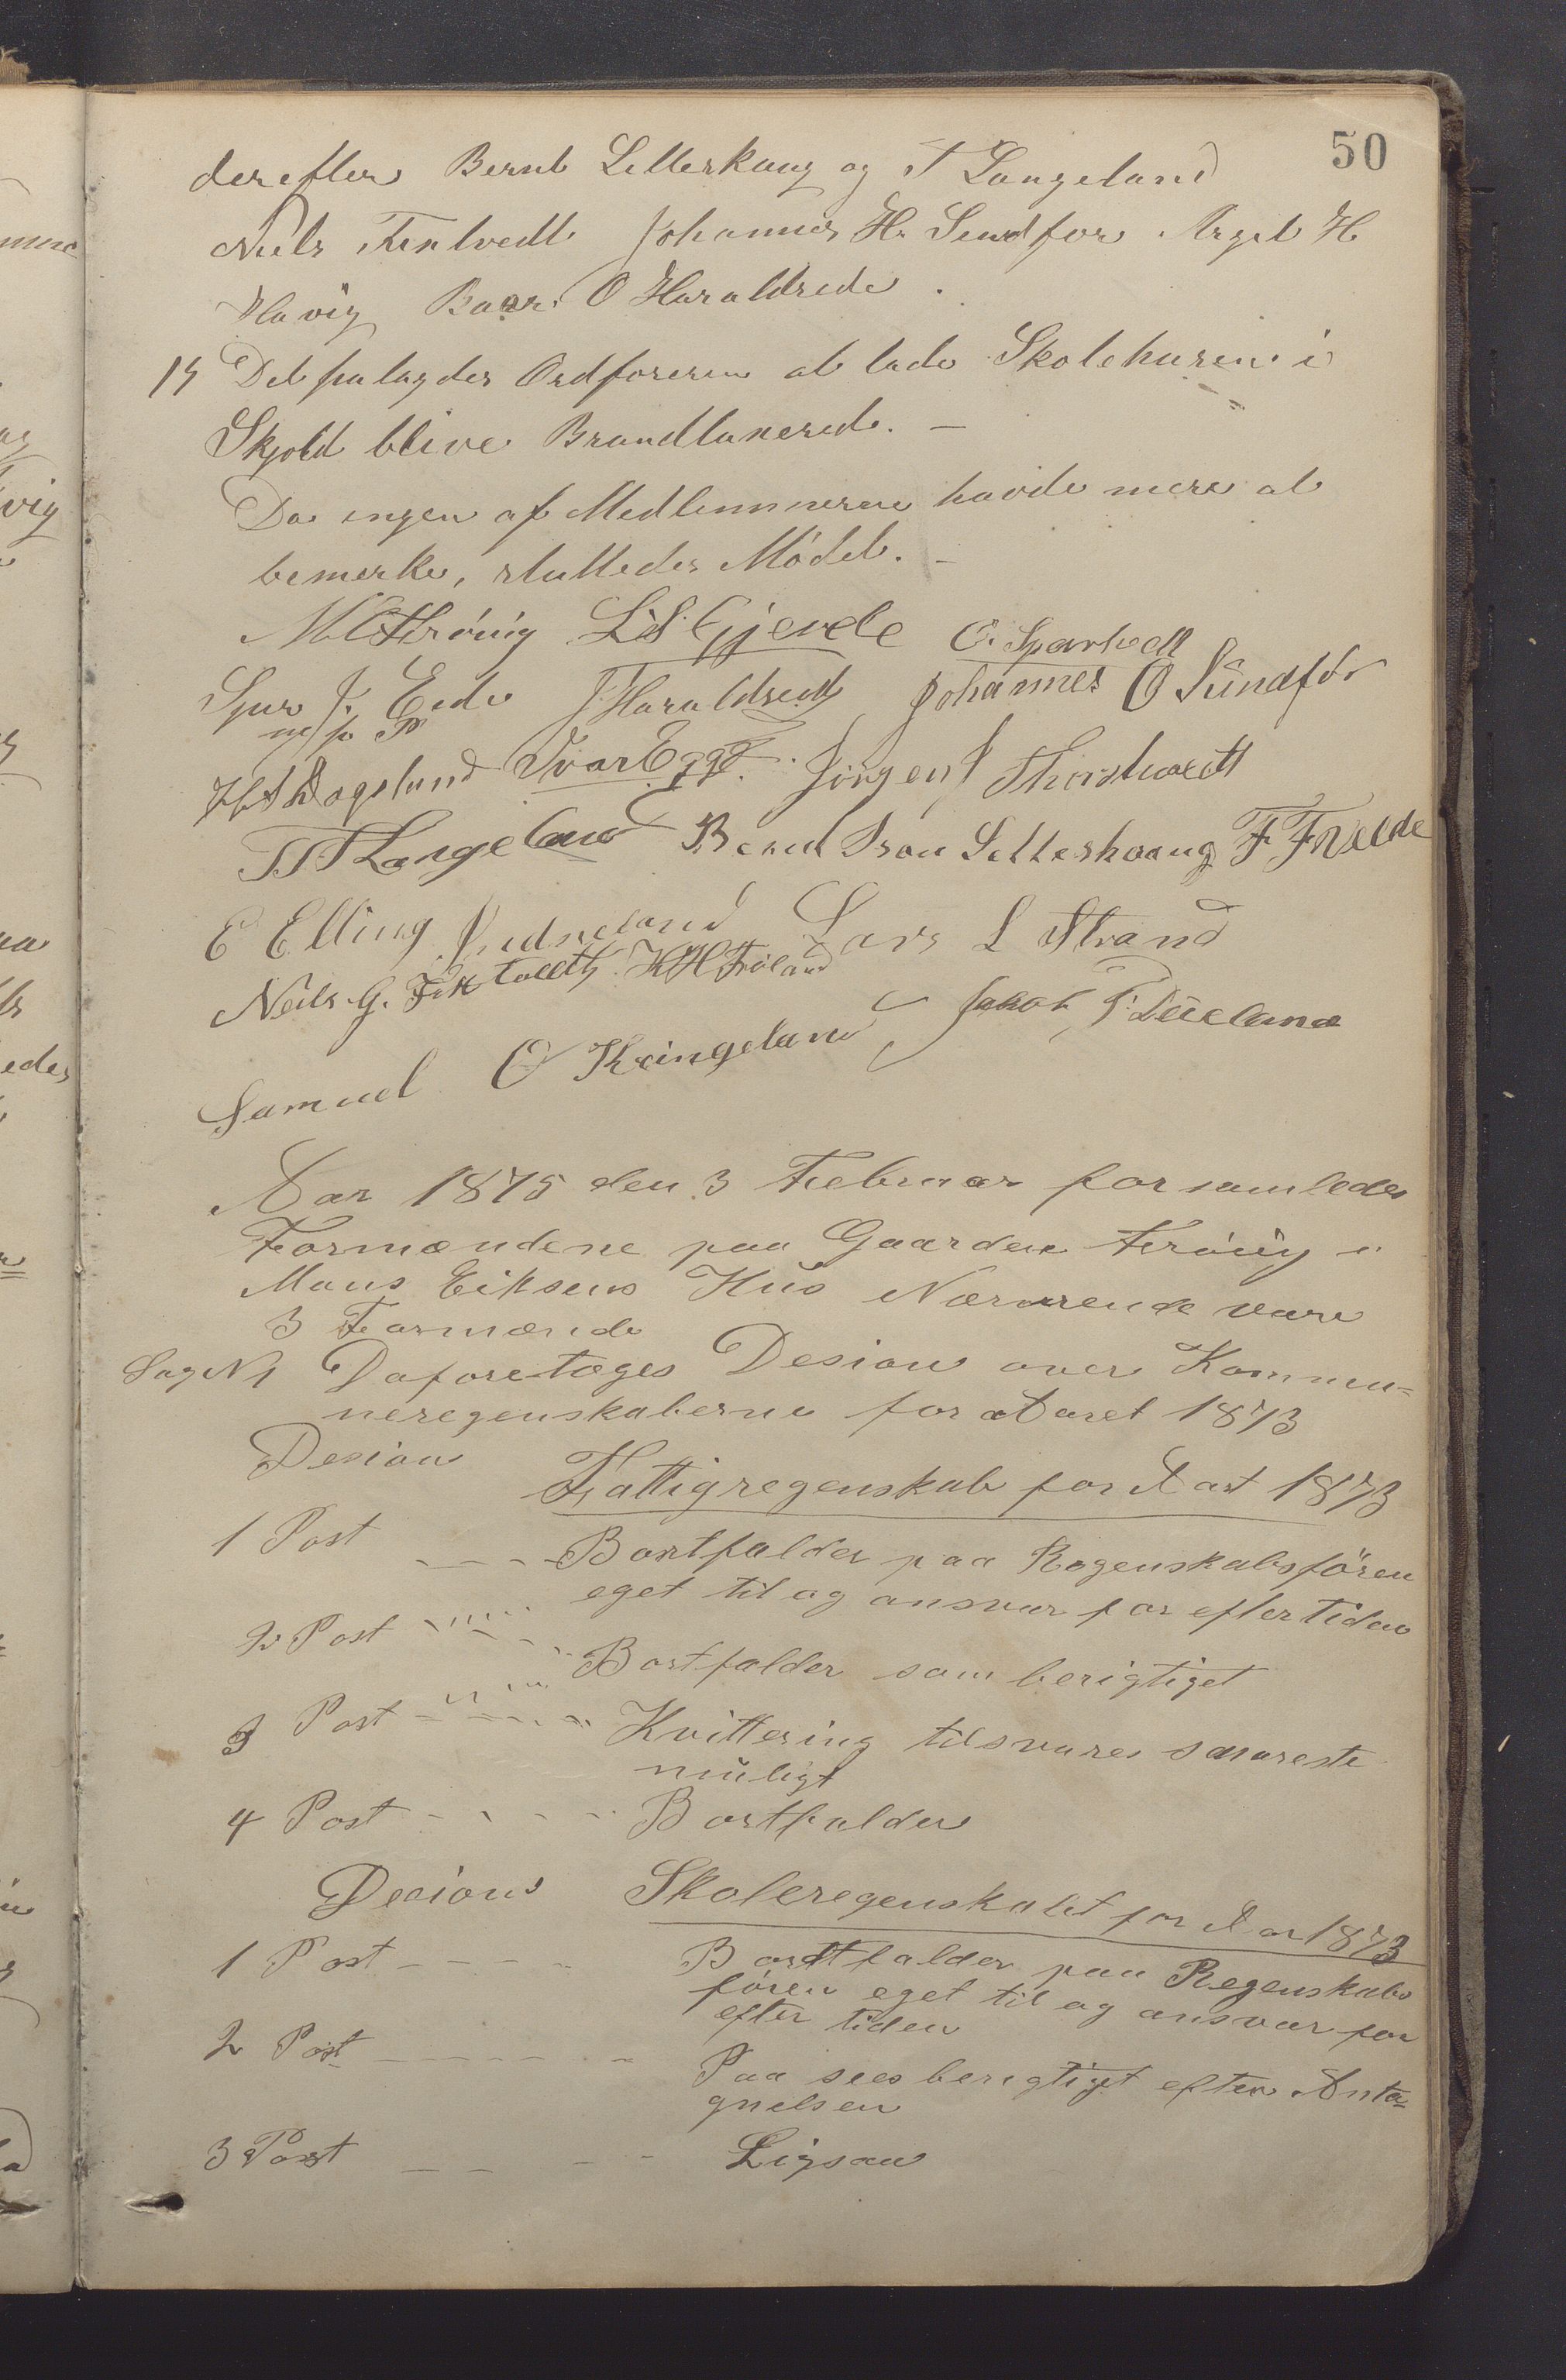 50
derefter Bernt Selleskaug og T Langeland
Niels Fixtvedt Johannes H. Sundfør Argit H
Havig Baar O Haraldseide.
15 Det paalagdes Ordføreren at lade Skolehusene i
Skjold blive Brandtaxerede. —
Da ingen af Medlemmerne havde mere at
bemerke, sluttedes Mödet. —
L S Gjerde O. Sparhvedt
J Haraldseid Johannes O Sündför
m/p P
Dagsland Ivar Egge. Jörgen J Thorshvedt
T T Langeland Bernt Ivson Selleskoug F F Velde
E Elling Lars L Strand
Neils. G. Fixtvedt K H Fröland
Samuel O Kringeland Jakob T. Dueland
Aar 1875 den 3 Februar forsamledes
Formændene paa Gaarden i
Mons Eiksens Hus Nærværende vare
3 Formænde
Sag N 1 Daforetoges Desion over Kommu=
neregenskaberne for Aaret 1873
Desion Fattigregenskab for Aart 1873
1 Post - - - Bortfalder paa Regenskabsfören
eget til og ansvar for efter tiden
2 Post Bortfalder som berigtiget
3 Post Kvittering tilsvares snareste
muligt
4 Post - - - - Bortfalder
Decions Skoleregenskabet for Aar 1873
1 Post - - - - Bortfalder paa Regenskabs
fören eget til og ansvar for
efter tiden
2 Post - - - - - Paa sees berigtiget efter Anta=
gnelsen
3 Post - - - - Ligsaa